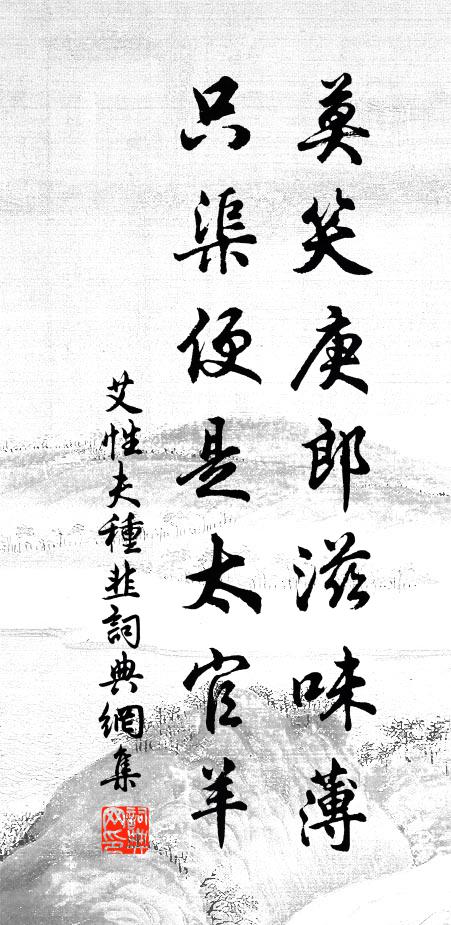 莫笑庾郎滋味薄
只渠便是太官羊
艾性夫種韭詞典網集
詞典網印